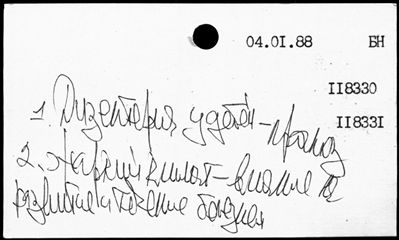 04.01.88 БН
118330
118331
1. Дизентерия у детей – прогноз
2. Жаркий климат – влияние на
развитие и течение болезней